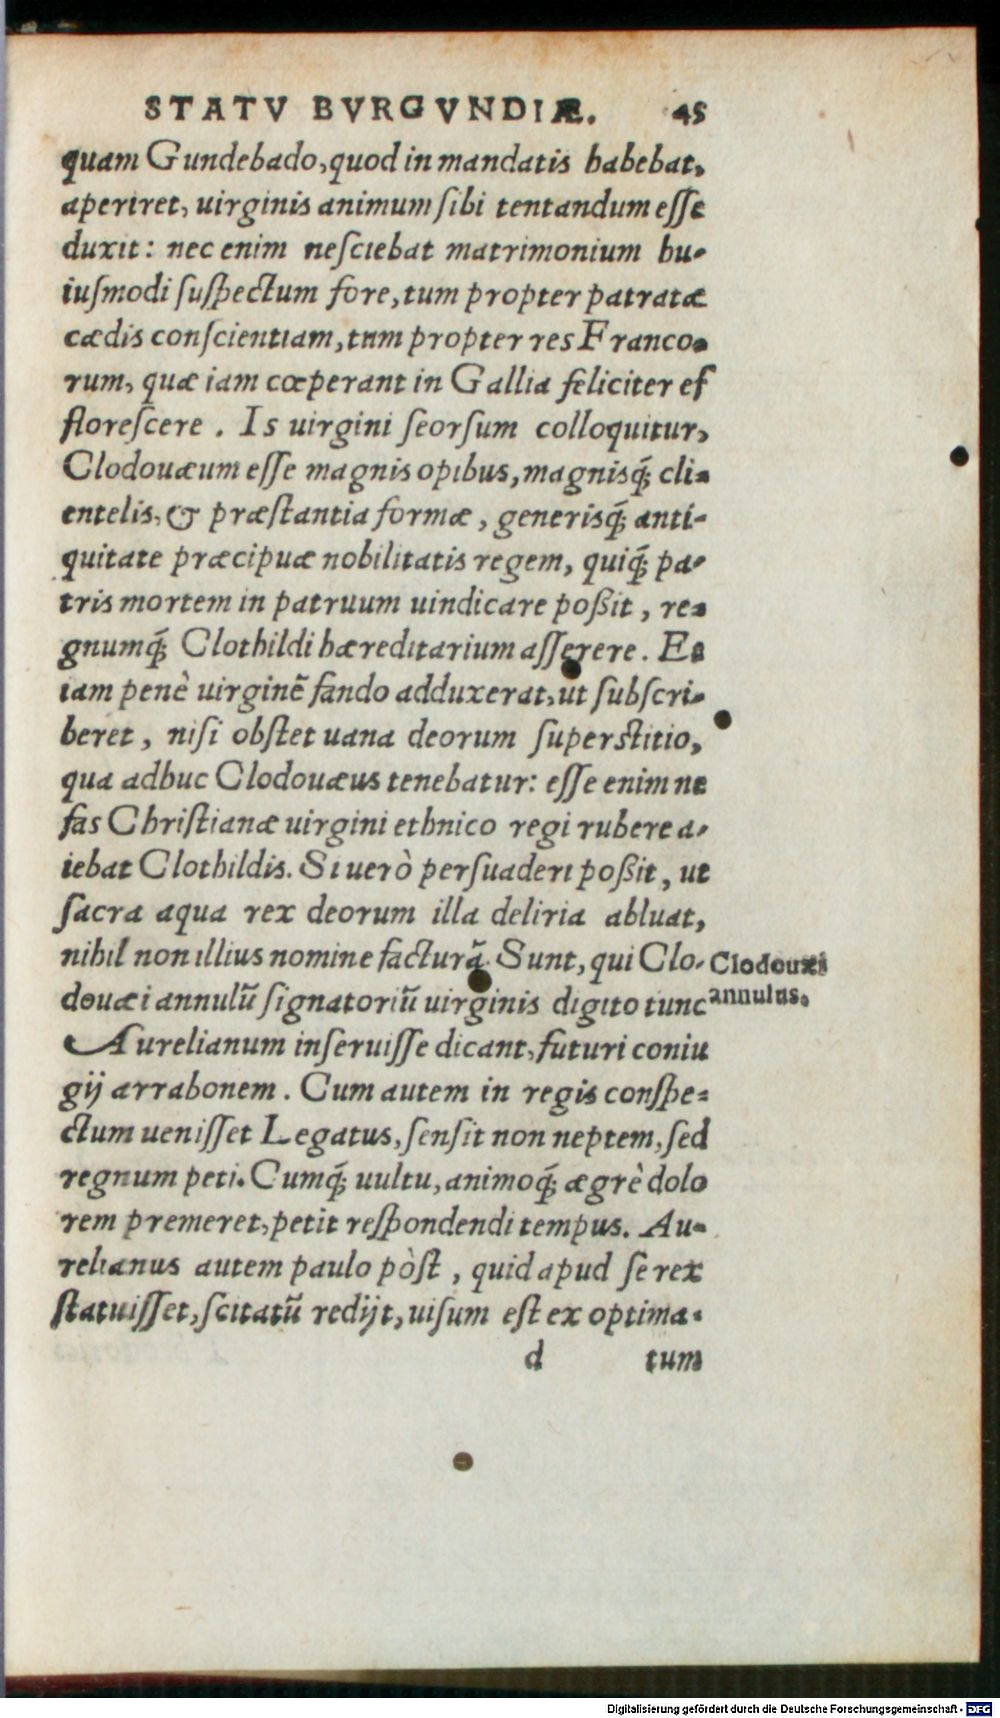 STATV BVRGVNDIÆ. 45
quam Gundebado, quod in mandatis habebat,
aperiret, uirginis animum ſibi tentandum eſſe
duxit: nec enim neſciebat matrimonium hu-
iuſmodi ſuſpectum fore, tum propter patratæ
cædis conſcientiam, tum propter res Franco-
rum, quæ iam cœperant in Gallia feliciter ef
floreſcere. Is uirgini ſeorſum colloquitur,
Clodouæum eſſe magnis opibus, magnisq́; cli-
entelis, & præſtantia formæ, generisq́; anti-
quitate præcipuæ nobilitatis regem, quiq́; pa-
tris mortem in patruum uindicare poßit, re-
gnumq́; Clothildi hæreditarium aſſerere. Ea
iam penè uirginē fando adduxerat, ut ſubſcri-
beret, niſi obſtet uana deorum ſuperſtitio,
qua adhuc Clodouæus tenebatur: eſſe enim ne
fas Chriſtianæ uirgini ethnico regi rubere a-
iebat Clothildis. Si uerò perſuaderi poßit, ut
ſacra aqua rex deorum illa deliria abluat,
nihil non illius nomine facturā. Sunt, qui Clo-
Clodouæi
douæi annulū ſignatoriū uirginis digito tunc
annulus.
Aurelianum inſeruiſſe dicant, futuri coniu
gij arrabonem. Cum autem in regis conſpe-
ctum ueniſſet Legatus, ſenſit non neptem, ſed
regnum peti. Cumq́; uultu, animoq́; ægrè dolo
rem premeret, petit reſpondendi tempus. Au-
relianus autem paulo pòſt, quid apud ſe rex
ſtatuiſſet, ſcitatū redijt, uiſum eſt ex optima-
d tum
Digitalisierung gefördert durch die Deutsche Forschungsgemeinschaft - DFG